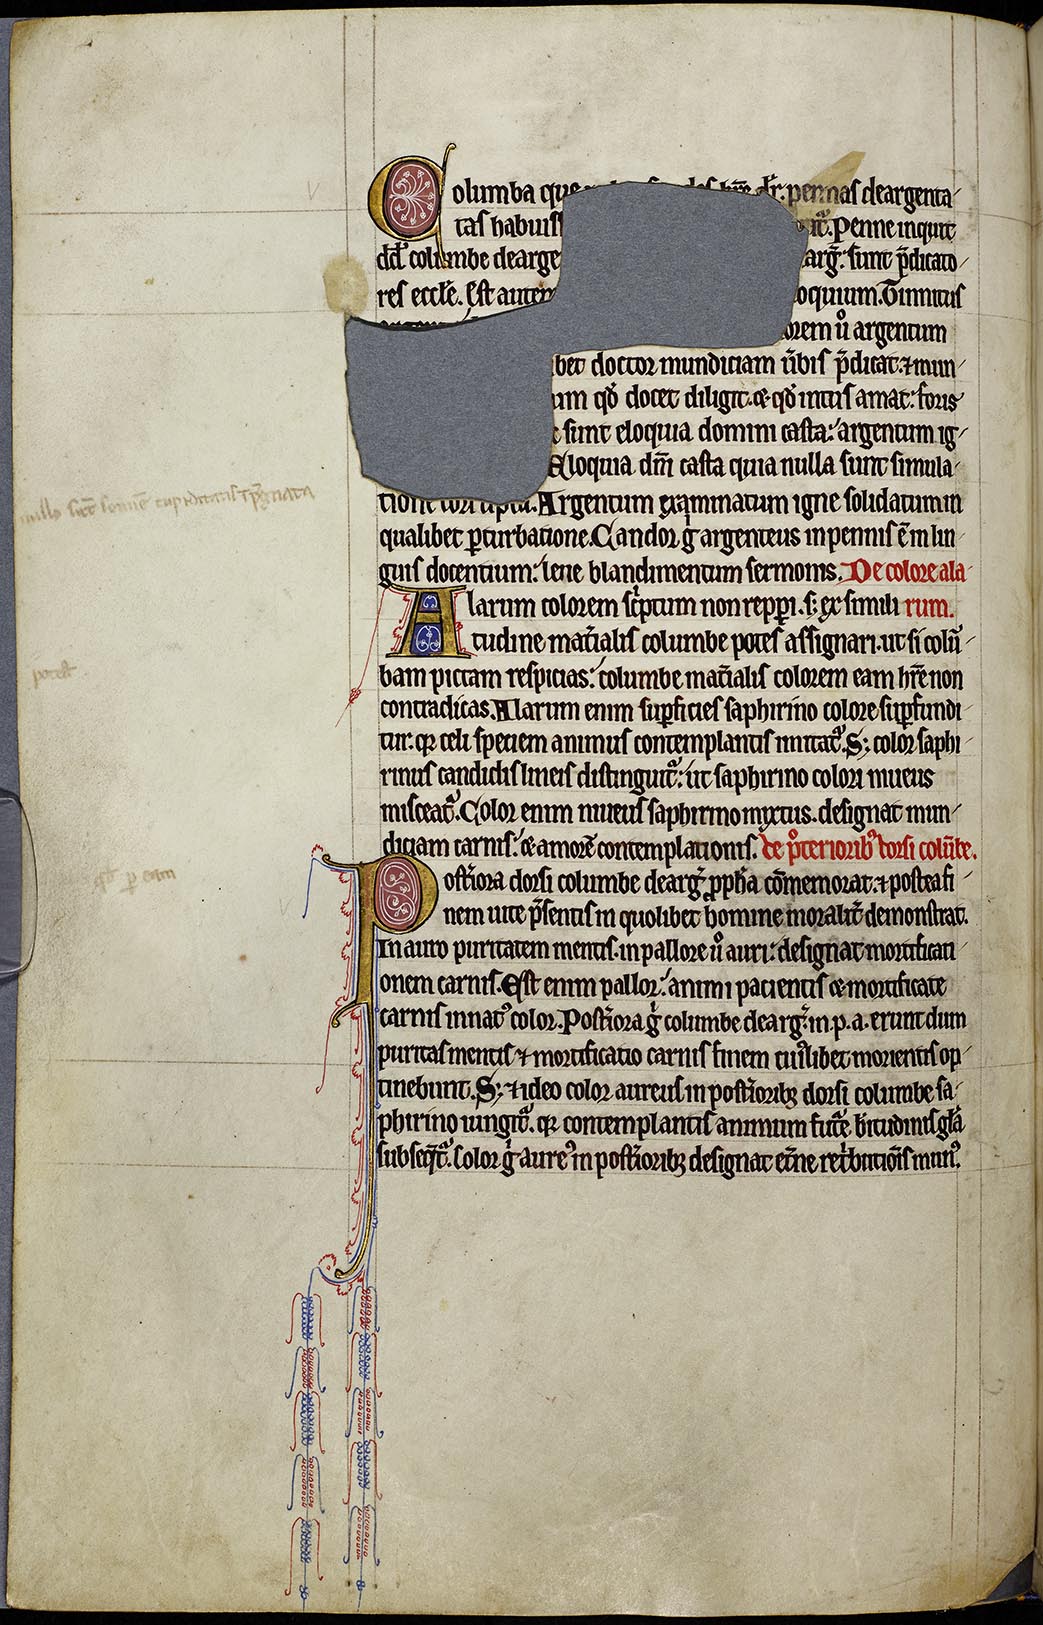 Columba que hr̄e dr̄. pennas deargenta
tas habuiss it᷑. Penne inquit
dđ columbe dearge arḡ: sunt p̄dicato
res eccl̄e. Est autem oquium. Tinnitus
orem ů argentum
bet doctor mundiciam ūbis p̄dicat. ⁊ mun
um qđ docet diligit. ⁊ qđ intus amat: foris
sunt eloquia domini casta: argentum ig
Eloquia dn̄i casta quia nulla sunt simula
tione corrupta. Argentum examinatum igne solidatum in
qualibet ꝑturbatione. Candor g̊ argenteus in pennis ē in lin
guis docentium: lene blandimentum sermonis. De colore ala
Alarum colorem sc̄ptum non repperi. s; ex simili rum.
tudine mat̄ialis columbe potes assignari. ut si colū
bam pictam respicias: columbe mat̄ialis colorem eam hr̄e non
contradicas. Alarum enim suꝑficies saphirino colore suꝑfundi
tur. qr celi speciem animus contemplantis imitat᷑. S; color saphi
rinus candidis lineis distinguit᷑: ut saphirino colori niueus
misceat᷑. Color enim niueus saphirino mixtus. designat mun
diciam carnis: ⁊ amorē contemplationis. De post̄ioribꝰ dorsi colūbe.
Post̄iora dorsi columbe dearḡ ꝓph̄a cōmemorat. ⁊ postea fi
nem uite p̄sentis in quolibet homine moralit̄ demonstrat.
In auro puritatem mentis. in pallore ů auri: designat mortificati
onem carnis. Est enim pallor: animi pacientis ⁊ mortificate
carnis innatꝰ color. Post̄iora g̊ columbe dearḡ. in. p. a. erunt dum
puritas mentis ⁊ mortificatio carnis finem cuiꝰlibet morientis op
tinebunt. S; ⁊ ideo color aureus in post̄ioribꝫ dorsi columbe sa
phirino iungit᷑. qr contemplantis animum fut̄e b̄titudinis gl̄a
subseq̄t᷑. Color g̊ aureꝰ in post̄ioribꝫ designat et̄ne ret̄butiōis munꝰ.
potest